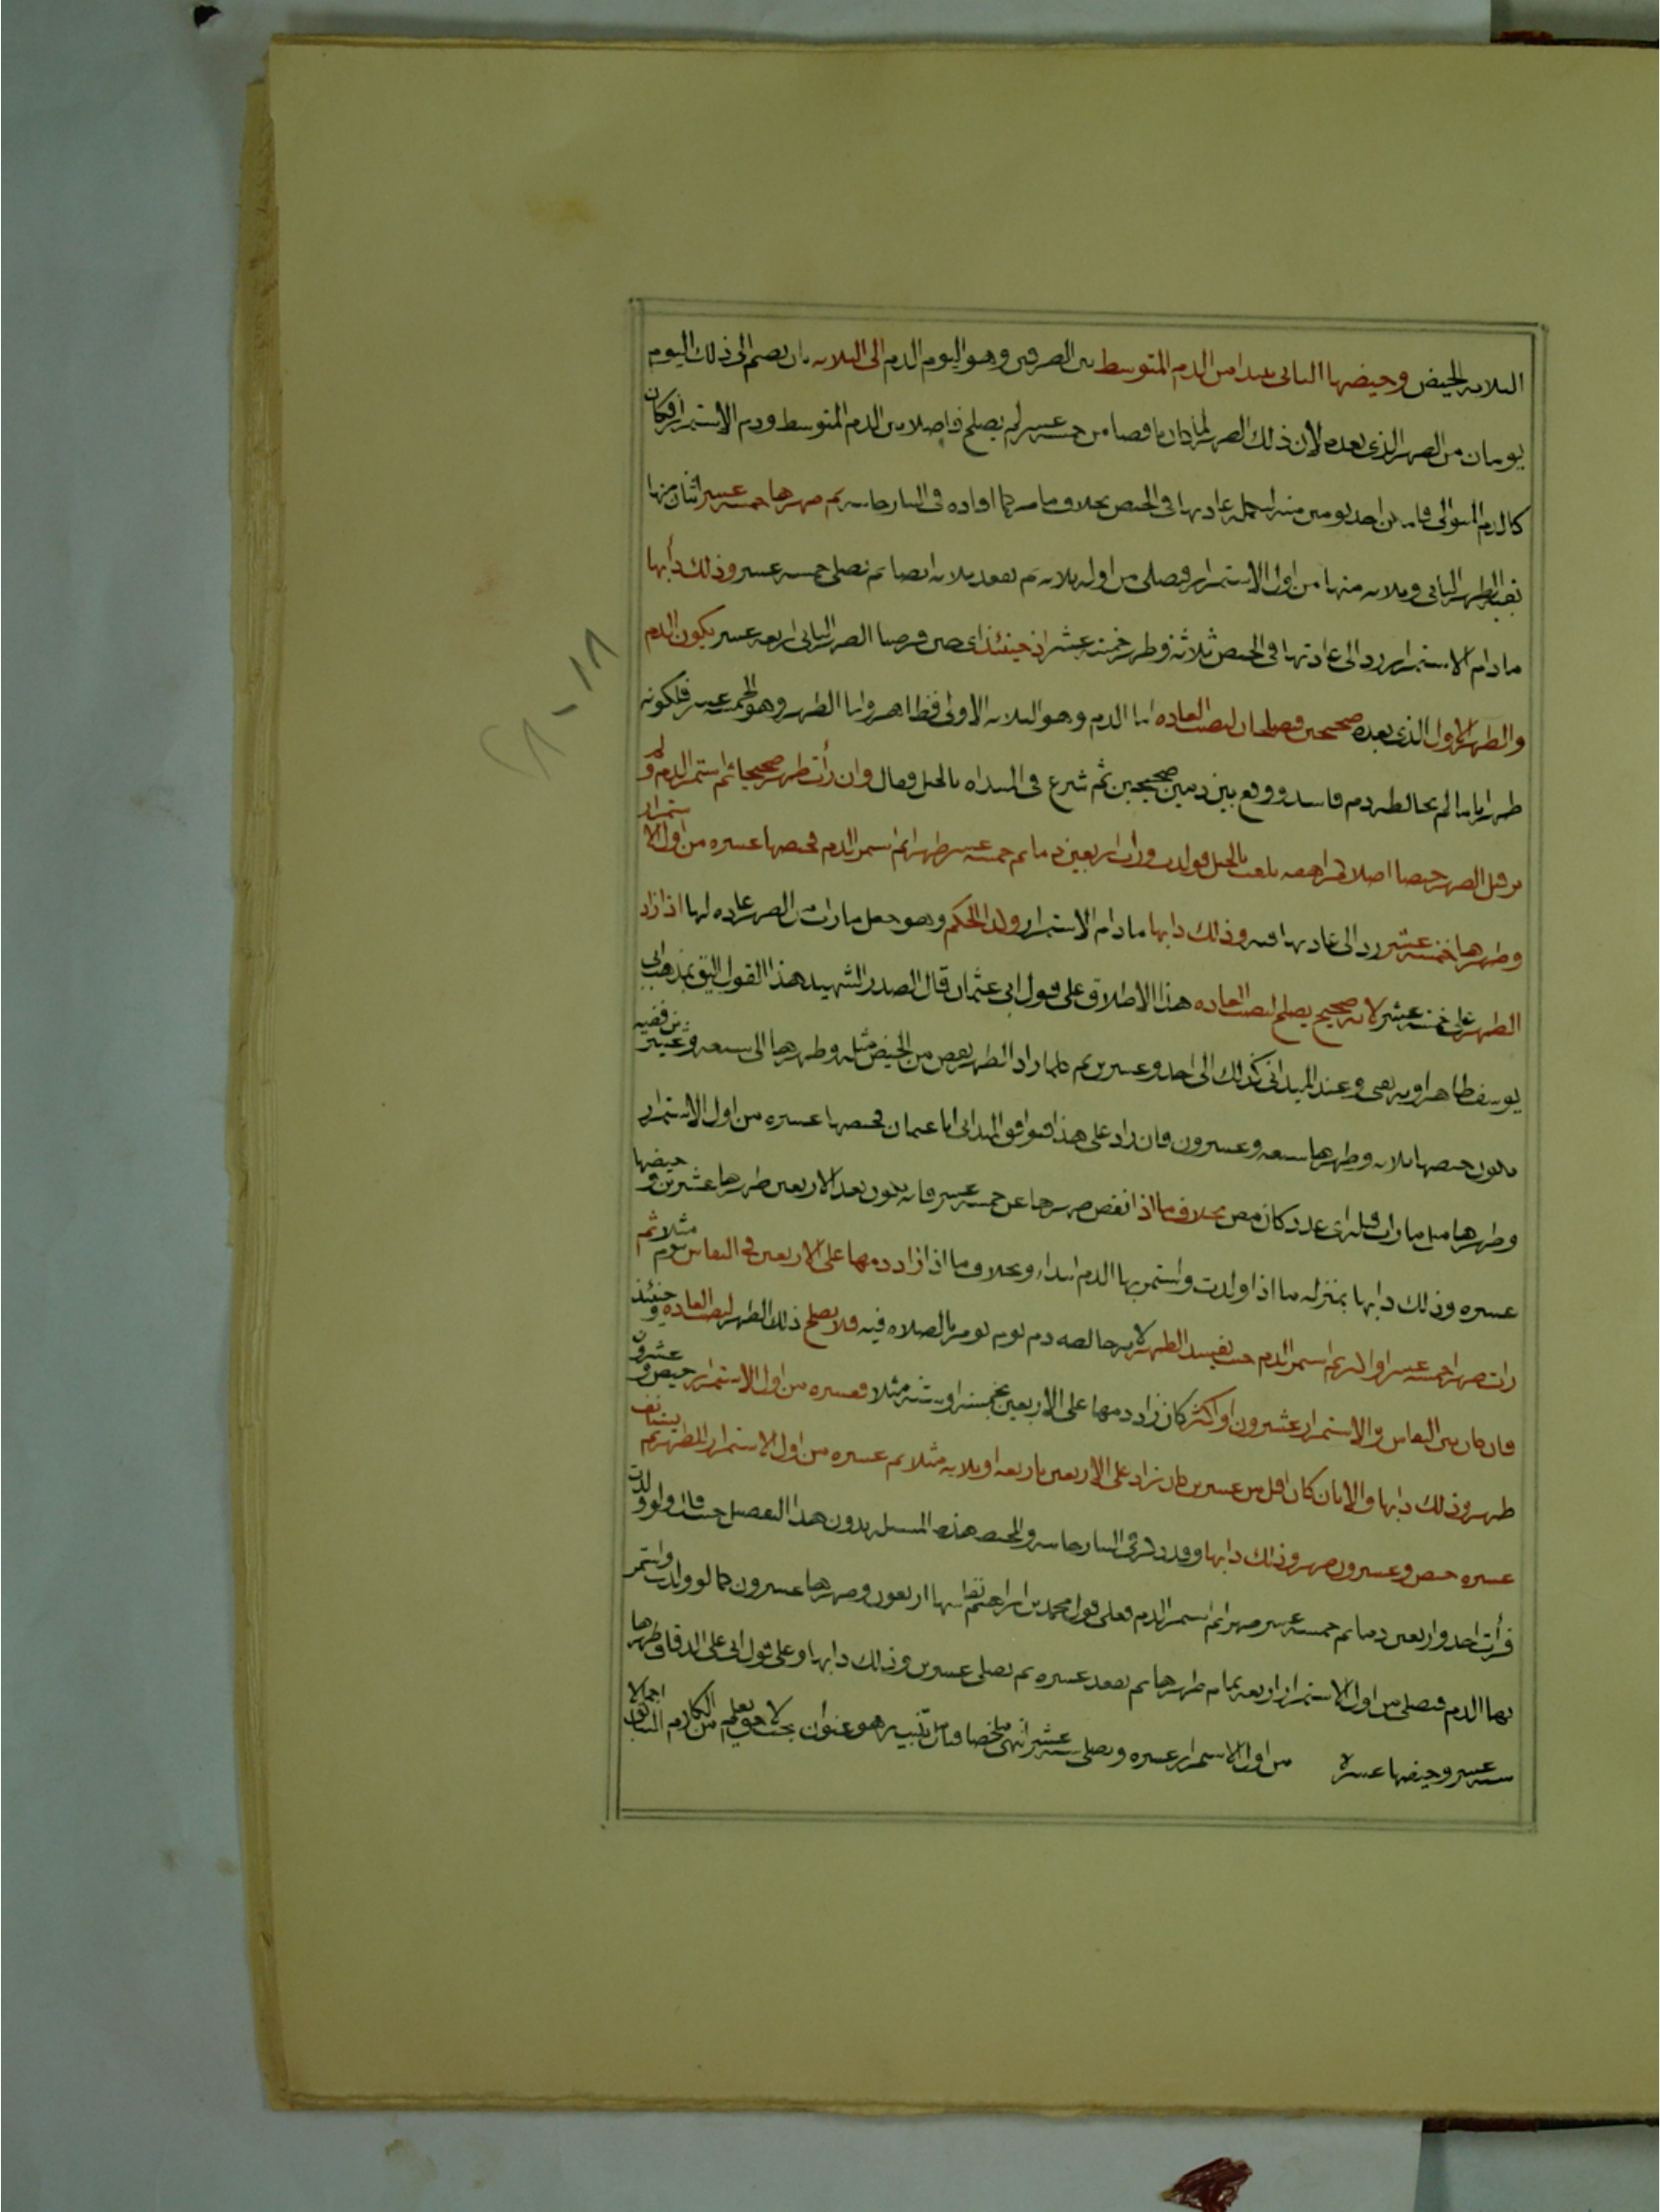 الثلاثة الحيض وحيضها الثاني يبتدأ من الدم المتوسط بين الطهرين وهو اليوم الدم الى الثلاثة بان يضم الى ذلك اليوم
يومان من الطهر الذي بعده لان ذلك الطهر لما كان ناقصا من خمسة عشر لم يصلح فاصلا بين الدم المتوسط ودم الاستمرار فكان
كالدم المتوالي يومين منه لتكمل عادتها في الحيض بخلاف ما مر كما افاده في التتارخانية ثم طهرها خمسة عشر اثنان منها
الطهر الثاني وثلاثة منها من اول الاستمرار فتصلي من اوله ثلاثة ثم تقعد ثلاثة ايضا ثم تصلي خمسة عشر وذلك دأبها
ما دام الاستمرار رد الى عادتها في الحيض ثلاثة وطهر خمسة عشر اذ حينئذ اي حين فرضنا الطهر الثاني اربعة عشر يكون الدم
والطهر الاول الذي بعده صحيحين فصلحان لنصب العادة اما الدم وهو الثلاثة الاولى فظاهر واما الطهر وهو الخمسة عشر فلكونه
طهرا تاما لم يخالطه دم فاسد ووقع بين دمين صحيحين ثم شرع في المبتداه بالحبل وقال وان رأت طهرا صحيحا ثم استمر الدم ولم
تر قبل الطهر حيضا اصلا كمراهقة بلغت بالحبل فولدت ورات اربعين دما ثم خمسة عشر طهرا ثم استمر الدم فحيضها عشرة من اول الاستمرار
وطهرها خمسة عشر رد الى عادتها فيه وذلك دابها ما دام الاستمرار ولذا الحكم وهو جعل ما رات من الطهر عادة لها اذا زاد
الطهر على خمسة عشر لانه صحيح يصلح لنصب العادة هذا الاطلاق على قول ابي عثمان قال الصدر الشهيد هذا القول اليق بمذهب ابي
يوسف ظاهرا وبه يفتى وعند الميداني كذلك الى احد وعشرين ثم كلما زاد الطهر نقص من الحيض مثله وطهرها الى سبعة وعشرين ففيه
يكون حيضها ثلاثة وطهرها سبعة وعشرون فان زاد على هذا فوافق الميداني ابا عثمان فحيضها عشرة من اول الاستمرار
وطهرها مثل ما رات قبله اي عدد كان بخلاف ما اذا نقص طهرها عن خمسة عشر فانه يكون بعد الاربعين طهرها عشرين وحيضها
عشرة وذلك دابها بمنزلة ما اذا ولدت واستمر بها الدم ابتداء وبخلاف ما اذا زاد دمها على الاربعين في النفاس بيوم مثلا ثم
رات طهرا خمسة عشر او اكثر ثم استمر الدم حيث يفسد الطهر لانه خالطه دم يوم تؤمر بالصلاة فيه فلا يصلح ذلك الطهر لنصب العادة وحينئذ
فان كان بين النفاس والاستمرار عشرون او اكثر كان زاد دمها على الاربعين بخمسة او ستة مثلا فعشرة من اول الاستمرار حيض وعشرون
طهر وذلك دابها والا بان كان اقل من عشرين كان زاد على الاربعين باربعة او ثلاثة مثلا ثم عشرة من اول الاستمرار للطهر ثم يستانف
عشرة حيض وعشرون طهر وذلك دابها وقد ذكر في التتارخانية والمحيط هذه المسئلة بدون هذا التفصيل حيث قال ولو ولدت
فرأت احد واربعين دما ثم خمسة عشر طهرا ثم استمر الدم فعلى قول محمد بن ابراهيم نفاسها اربعون وطهرها عشرون كما لو ولدت واستمر
بها الدم فتصلي من اول الاستمرار اربعة تمام طهرها ثم تقعد عشرة ثم تصلي عشرين وذلك دابها وعلى قول ابي علي الدقاق طهرها
ستة عشر وحيضها عشرة من اول الاستمرار عشرة وتصلي ستة عشر انتهى ملخصا فتأمل تنبيه هو عنوان بحث لاحق يعلم من الكلام السابق اجمالا
١٨-٢٨